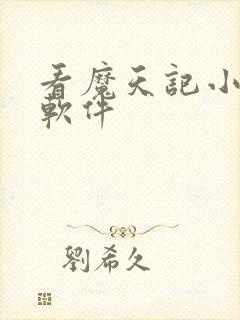 看魔天記小
軟件
劉希久